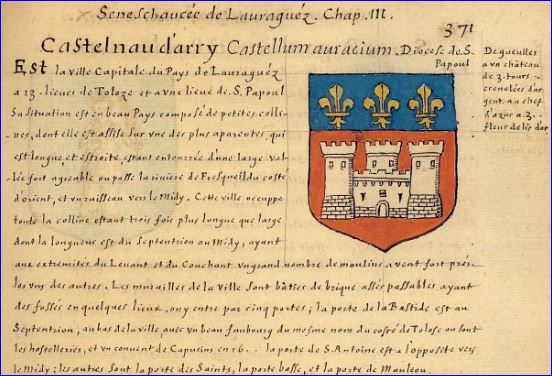 Seneschaucée de Lauraguéz. Chap. III.
371
Castelnaudarry Castellum auracium. Diocese de S. Papoul
De gueulles
a un château
de 3. tours
crenelées d'ar
gent. au chef
d'azur a 3.
fleur de lis d'or.
Est la ville Capitale du Pays de Lauraguéz
a 13. lieues de Toloze et a vne lieue de S. Papoul
Sa situation est en beau Pays composé de petites colli
nes, dont elle est assise sur vne des plus aparentes, qui
est longue et estroite, estant entournée d'une large val
lée fort agreable ou passe la riviere de Fresqueil du coste
d'orient, et vn ruisseau vers le Midy. Cette ville occuppe
toute la colline estant trois fois plus longue que large
dont la longueur est du Septentrion au Midy, ayant
aux extremités du Levant et du Couchant vn grand nombre de moulins a vent fort prés
les vns des autres. Les murailles de la ville sont bâties de brique assés passables ayant
des fossés en quelques lieux, on y entre par cinq portes; la porte de la Bastide est au
Septentrion, au bas de la ville, avec vn beau faubourg du mesme nom du costé de Tolose ou sont
les hostelleries, et vn convent de Capucins en 16.. la porte de S. Antoine est a l'opposéte vers
le Midy; les autres sont la porte des Saints, la porte basse, et la porte de Mauleou.